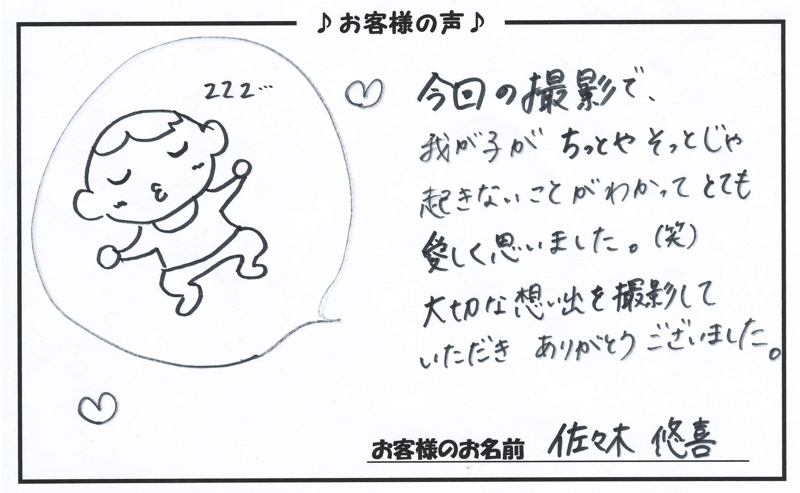 ♪お客様の声♪
zzz…
今回の撮影で、
我が子が ちっとや そっとじゃ
起きないことがわかってとても
愛しく思いました。(笑)
大切な想い出を撮影して
いただき ありがとうございました。
お客様のお名前 佐々木 悠喜